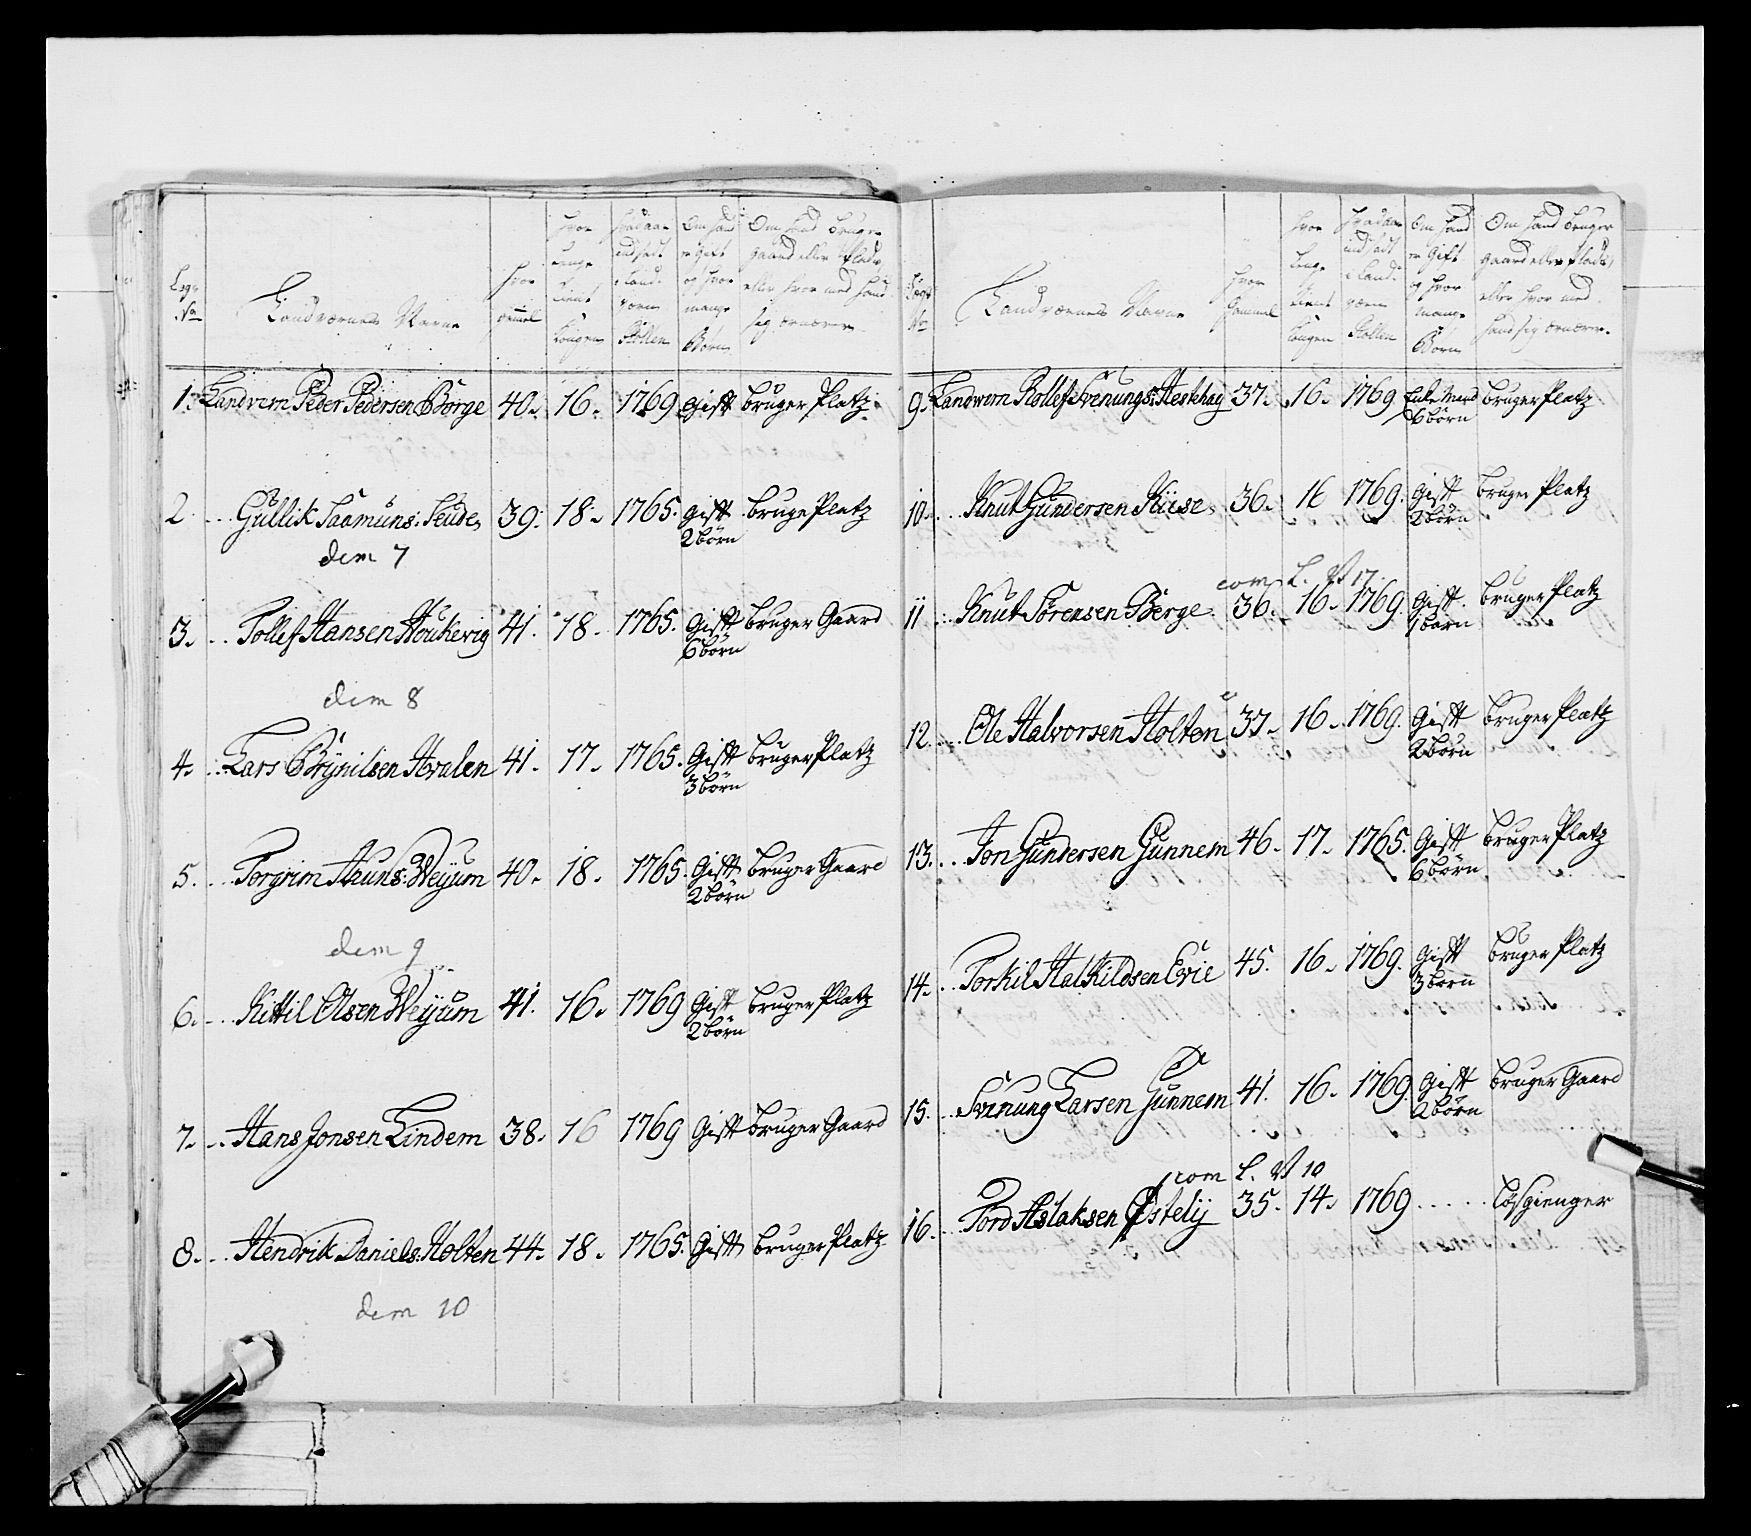 Leg: No
Landværnets Navne
hvor gammel
hvor lenge tient Kongen
hvad aar indsadt i Land-værn
Om hand er Gift og hvor mange Børn
Om hand bruger gaard eller Plads, eller hvor med hand sig ernærer
1. Landvern Peder Pedersen Børge 40. 16. 1769 Gift bruger Platz
2 Gullik Saamuns: Seude, 39. 18. 1765. Gift bruge Platz
2 børn
dem 7
3. Tollef Hansen Houkerig 41. 18. 1765. Gift bruger Gaard
6 børn
dem 8
4. Lars Brÿnilsen Hvalen 41. 17. 1765. Gift bruger Platz
3 børn
5. Torgrim Aauns: Weÿum 40. 18. 1765. Gift bruger Gaard
2 børn
dem 9
6. Kittil Olsen Weÿum 41. 16. 1769 Gift bruger Platz
2 børn
7. Hans Jonsen Lindem 38. 16 1769 Gift bruger Gaard
8. Hendrik Daniels: Holten 44. 18. 1765. Gift bruger Platz
dem 10
Legs No
Landværnets Navne
hvor Gammel
hvor lenge tient Kongen
hvad aar indsadt i Land-værn
Om hand er Gift og hvor mange Børn
Om hand bruger gaard eller Plads, eller hvor med hand sig ernærer
9. Landwern Rollef Svenungs: Aestehag 37. 16. 1769 Enke Mand bruger Platz
6 børn
10. Knut Gundersen Kiise 36. 16 1769. Gift bruger Platz
2 børn
com L. No 17
11 Knut Sørensen Berge 36. 16. 1769 Gift bruger Platz
1 barn
12. Ole Halvorsen Holten 37. 16. 1769. Gift bruger Platz
2 børn
13. Jon Gundersen Gunnem 46. 17. 1765. Gift bruger Platz
6 børn
14. Torkil Halkildsen Evie 45. 16. 1769. Gift bruger Platz
3 børn
15. Svinung Larsen Gunnem 41. 16. 1769. Gift bruger Gaard
2 børn
com L. No 10
16. Tord Aslaksen Østelÿ 35. 14. 1769 løsgienger